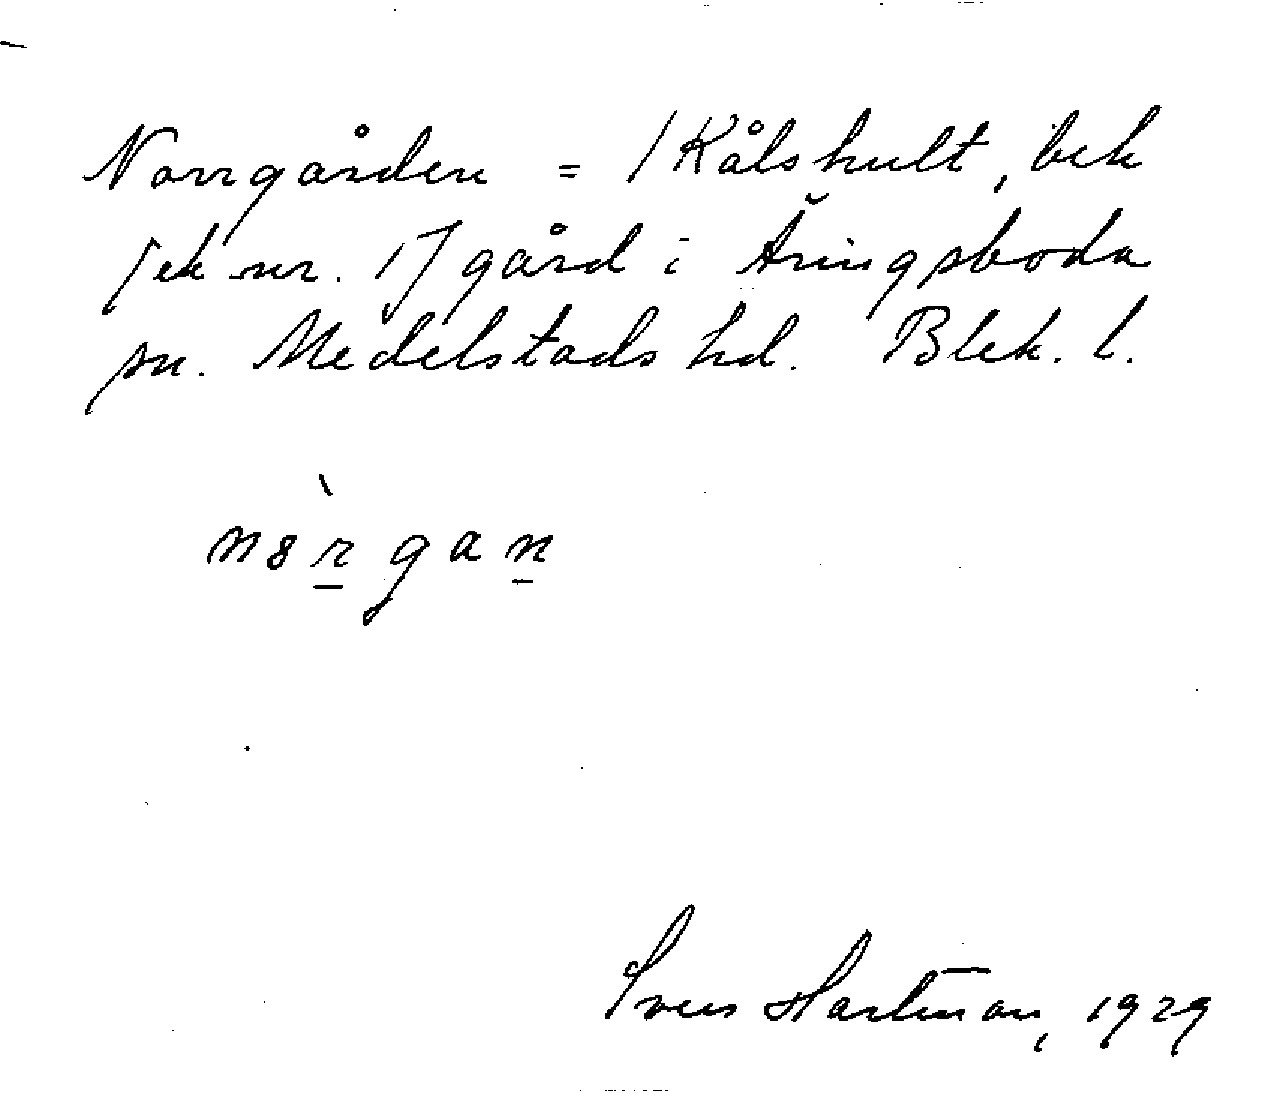 Norrgården = /Kålshult, bek
[ek nr. 1] gård i Åringsboda
sn. Medelstads hd. Blek. l.
n8̀r̲gan̲
Sven Hartman, 1929